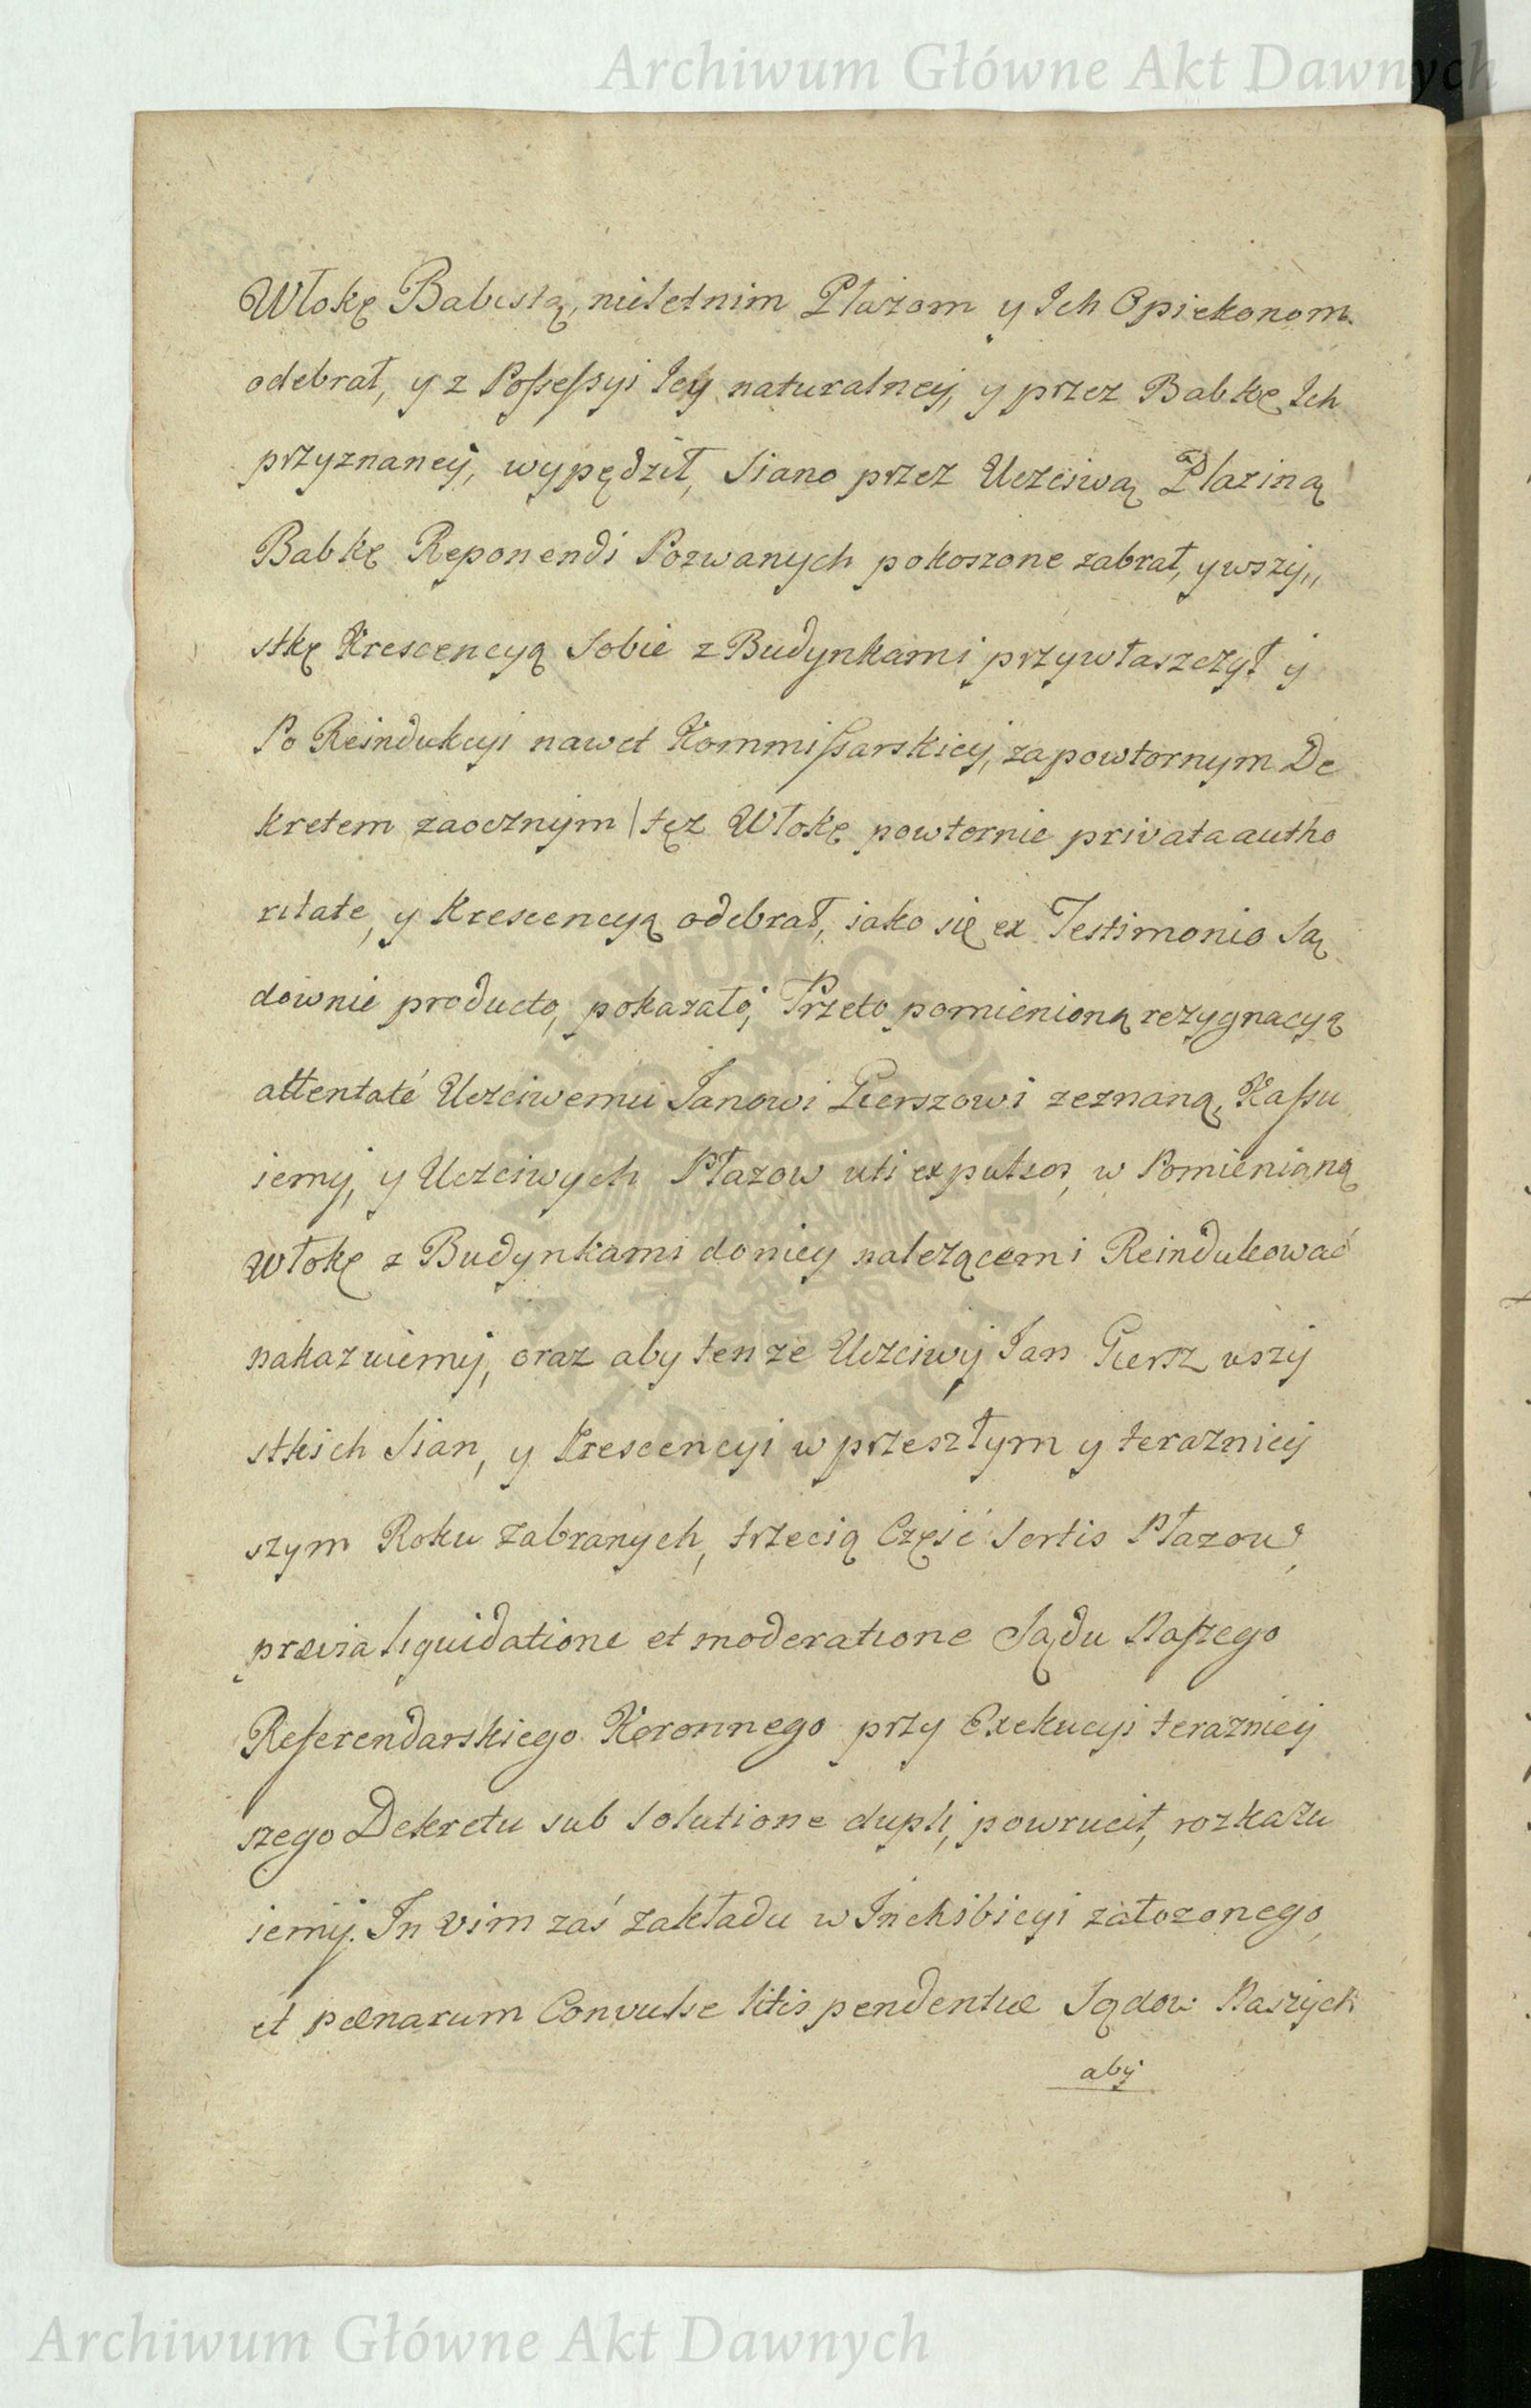 Archiwum Główne Akt Dawnych
Włokę Babistą, nieletnim Płazom y Ich Opiekonom
odebrał, y z Possessyi Iey naturalney, y przez Babkę Ich
przyznaney, wypędził, Siano przez Uczciwą Płaziną
Babkę Reponendi Pozwanych pokoszone zabrał, y wszy„
stkę Krescencyą Sobie z Budynkami przywłaszczył y
Po Reindukcyi nawet Kommissarskiey, za powtornym De
kretem zaocznym tęz Włokę powtornie privata autho
ritate, y Krescencyą odebrał, iako się ex Testimonio Są
downie producto, pokazało; Przeto pomienioną rezygnacyą
attentaté Uczciwemu Janowi Gierszowi zeznaną, Kassu
iemy, y Uczciwych Płazow uti expulsos, w Pomienioną
Włokę z Budynkami do niey nalezącemi Reindukować
nakazuiemy, oraz aby tenze Uczciwy Jan Giersz wszy
stkich Sian, y Krescencyi w przeszłym y terazniey
szym Roku zabranych, trzecią Część Sortis Płazow,
prævia liquidatione et moderatione Sądu Naszego
Referendarskiego Koronnego przy Exekucyi terazniey
szego Dekretu sub Solutione dupli, powrucił, rozkazu
iemy. In vim zaś zakładu w Inchibicyi załozonego,
et pænarum Convulsæ litis pendentiæ Sądow Naszych
aby
Archiwum Główne Akt Dawnych